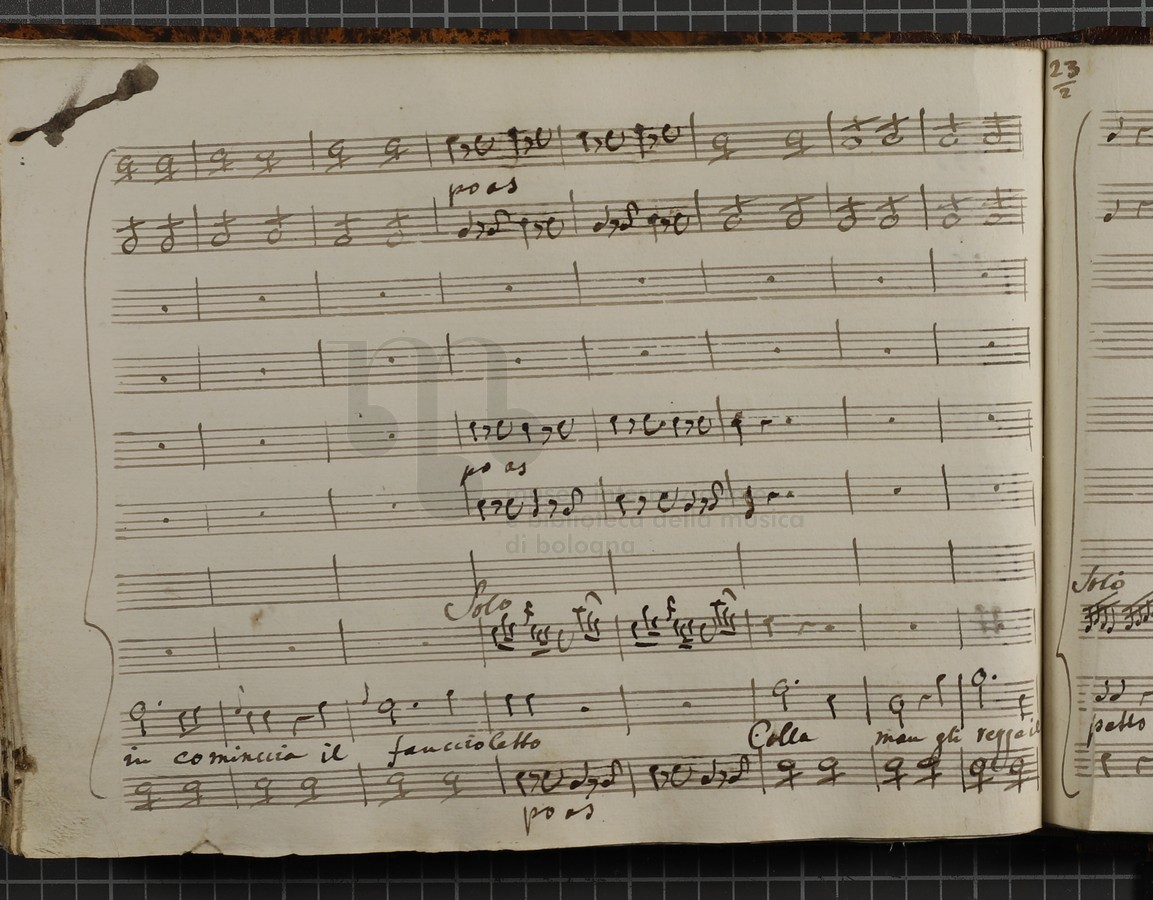 23
2
po as
po as
e biblioteca della musica
di bologna
Solo
Solo
in cominccia il fauccioletto
Colla man gli regge il
petto
po as